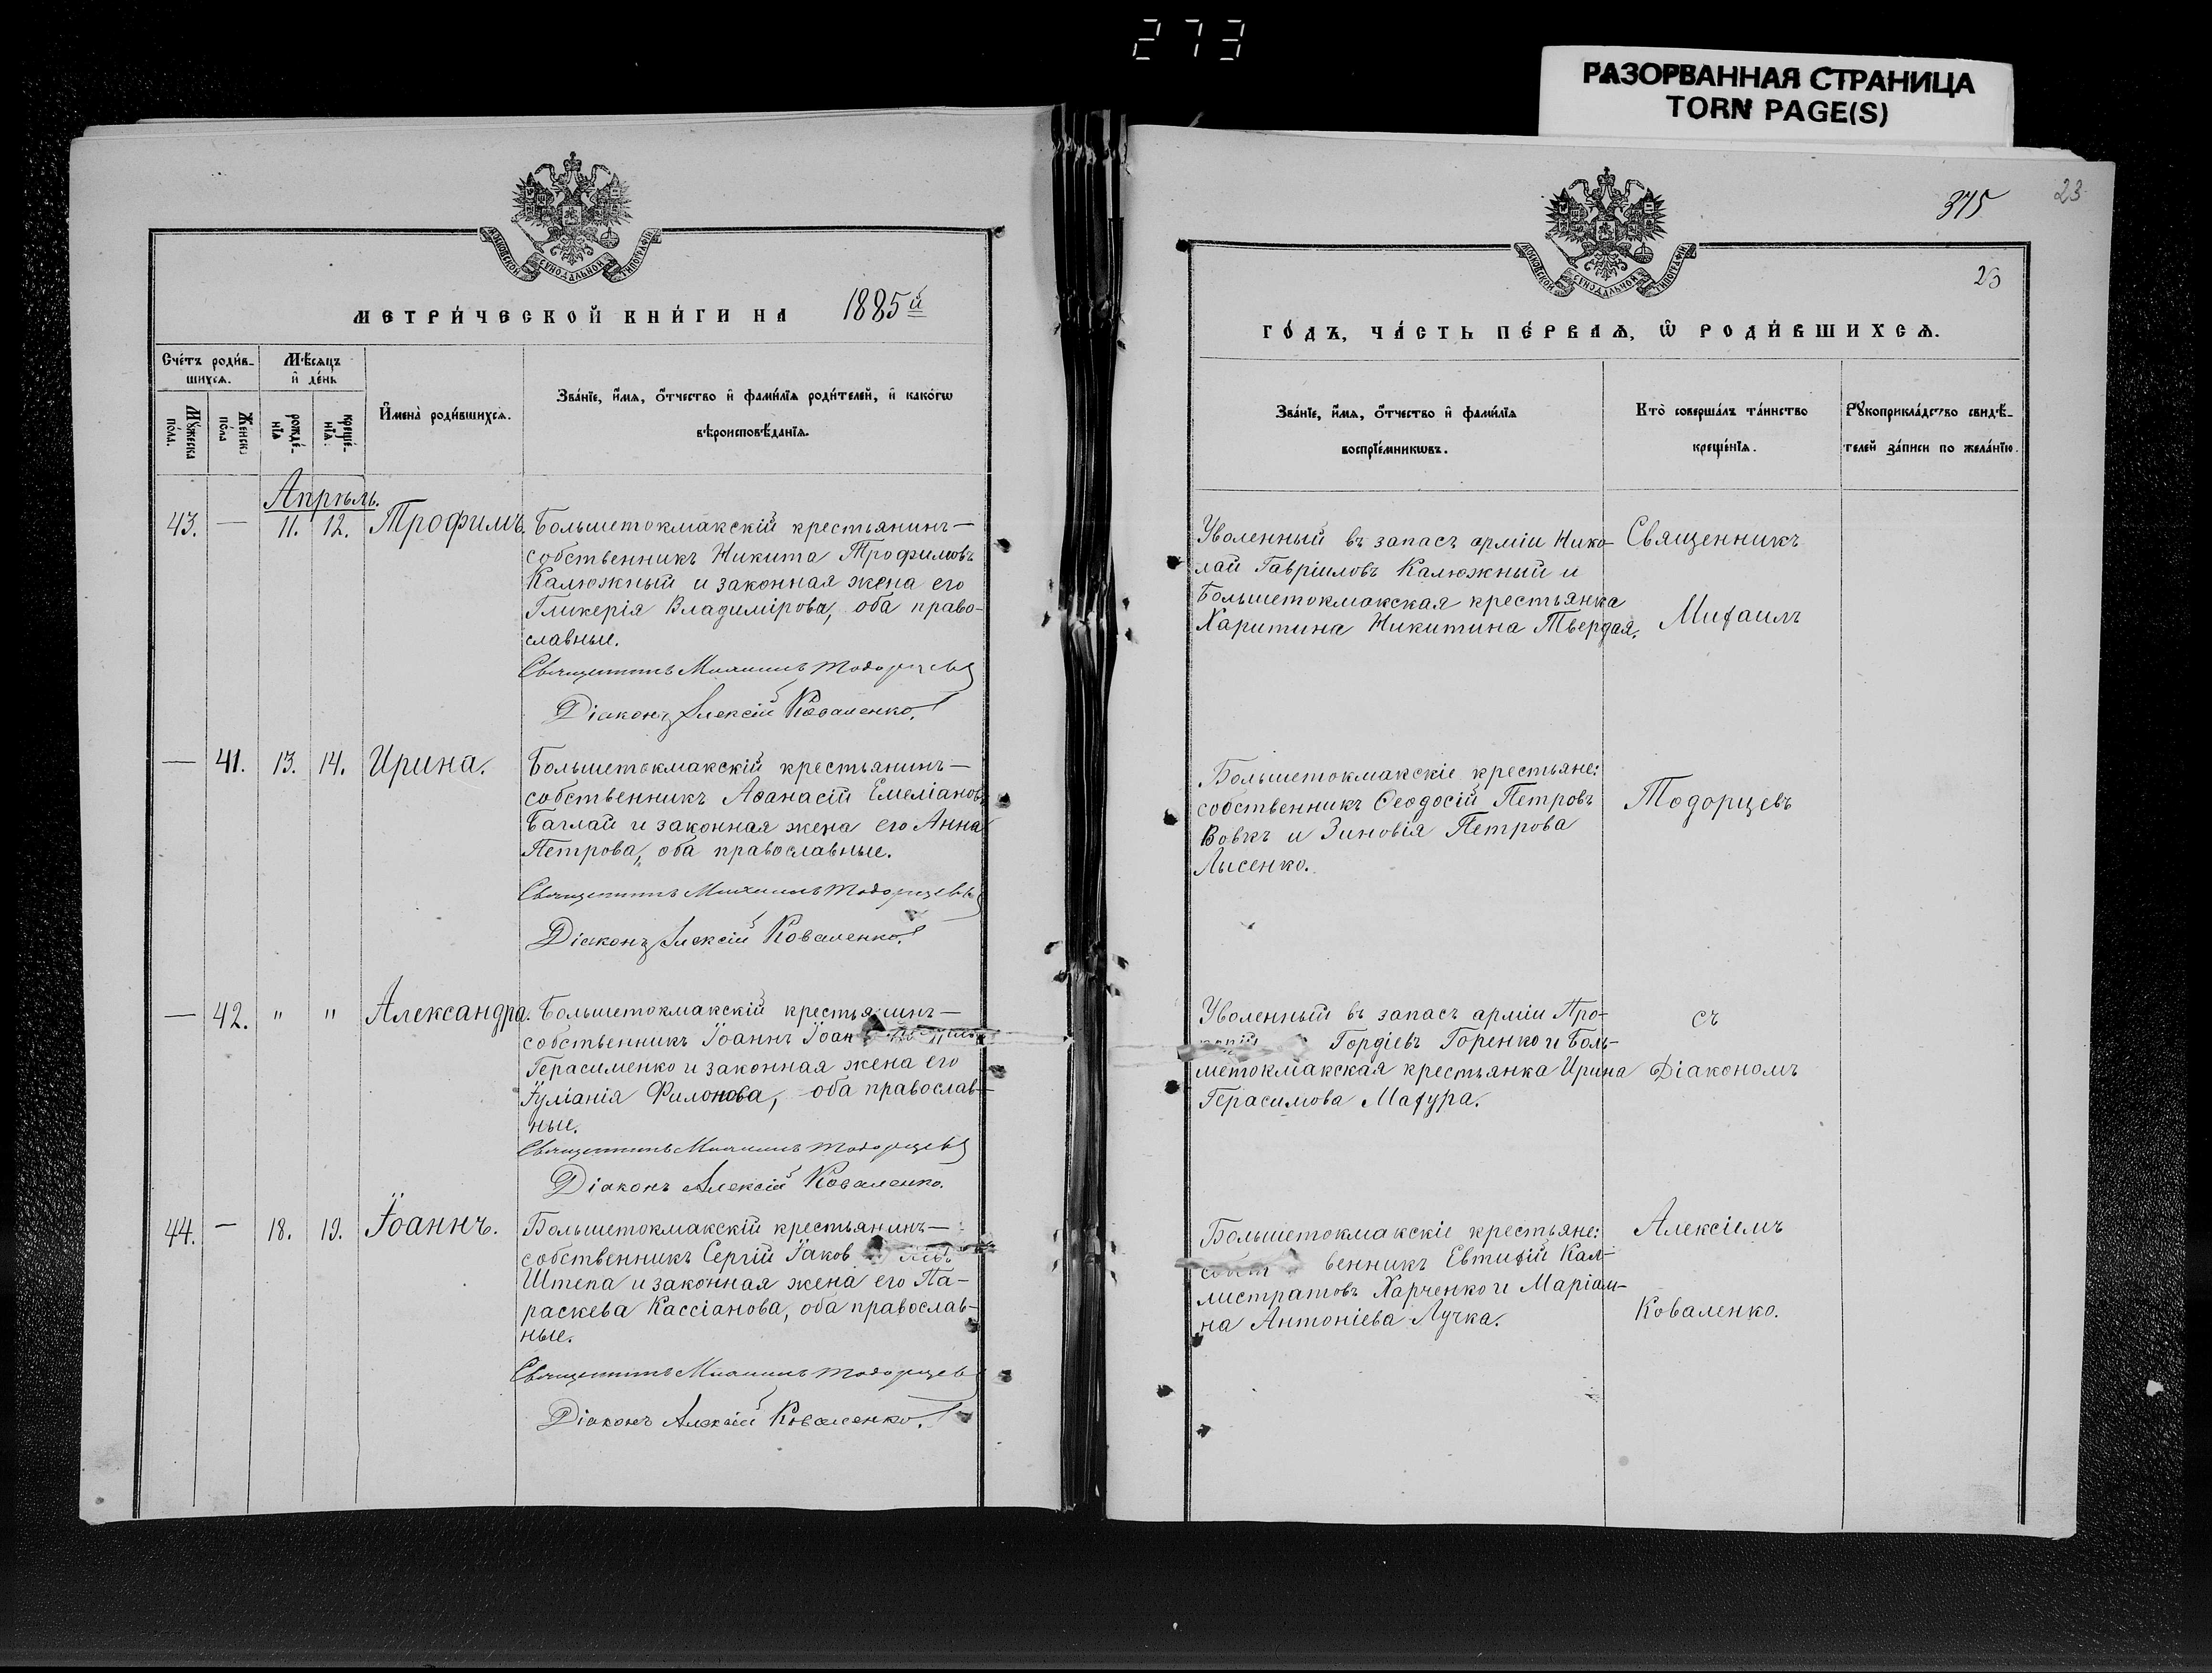 273
РАЗОРВАННАЯ СТРАНИЦА
TORN PAGE(S)
МОСКОВСКОЙ СѴНОДАЛЬНОЙ ТИПОГРАФІИ
МЕТРИ́ЧЕСКОЙ КНИ́ГИ НА 1885й
Сче́тъ роди́в-
шихсѧ.
Мѣсѧцъ
и҆ де́нь
Мꙋжеска
по́ла.
Женска
по́ла
рожде́-
нїѧ
креще́-
нїѧ.
И҆мена̀ роди́вшихсѧ.
Зва́нїе, и҆́мѧ, ѻ҆́тчество и҆ фами́лїѧ роди́телей, и҆ како́гѡ
вѣроисповѣ́данїѧ.
Апрѣль.
43. — 11. 12. Трофимъ. Большетокмакскій крестьянинъ—
собственникъ Никита Трофимовъ
Калюжный и законная жена его
Гликерія Владимірова, оба право-
славные.
Священникъ Михаилъ Тодорцевъ
Діаконъ Алексій Коваленко.
— 41. 13. 14. Ирина. Большетокмакскій крестьянинъ—
собственникъ Аѳанасій Емеліановъ
Баглай и законная жена его Анна
Петрова, оба православные.
Священникъ Михаилъ Тодорцевъ
Діаконъ Алексій Коваленко.
— 42. " " Александра. Большетокмакскій крестьянинъ—
собственникъ Іоаннъ Іоан
Герасименко и законная жена его
Іуліанія Филонова, оба православ-
ные.
Священникъ Михаилъ Тодорцевъ
Діаконъ Алексій Коваленко.
44. — 18. 19. Іоаннъ. Большетокмакскій крестьянинъ—
собственникъ Сергій Іаков левъ
Штепа и законная жена его Па-
раскева Кассіанова, оба православ-
ные.
Священникъ Михаилъ Тодорцевъ
Діаконъ Алексій Коваленко.
375
23
МОСКОВСКОЙ СѴНОДАЛЬНОЙ ТИПОГРАФІИ
23
ГО́ДЪ, ЧА́СТЬ ПЕ́РВАѦ, Ѡ҆ РОДИ́ВШИХСѦ.
Зва́нїе, и҆́мѧ, ѻ҆́тчество и҆ фами́лїѧ
воспрїе́мникѡвъ.
Кто̀ соверша́лъ та́инство
креще́нїѧ.
Рꙋкоприкла́дство свидѣ́-
телей за́писи по жела́нїю.
Уволенный въ запасъ арміи Нико-
лай Гавріиловъ Калюжный и
Большетокмакская крестьянка
Харитина Никитина Твердая.
Священникъ
Михаилъ
Большетокмакскіе крестьяне:
собственникъ Ѳеодосій Петровъ
Вовкъ и Зиновія Петрова
Лисенко.
Тодорцевъ
Уволенный въ запасъ арміи Про-
Гордіевъ Горенко и Боль-
шетокмакская крестьянка Ирина
Герасимова Махура.
съ
Діакономъ
Большетокмакскіе крестьяне:
собст венникъ Евтихій Кал-
листратовъ Харченко и Маріам-
на Антоніева Лучка.
Алексіемъ
Коваленко.